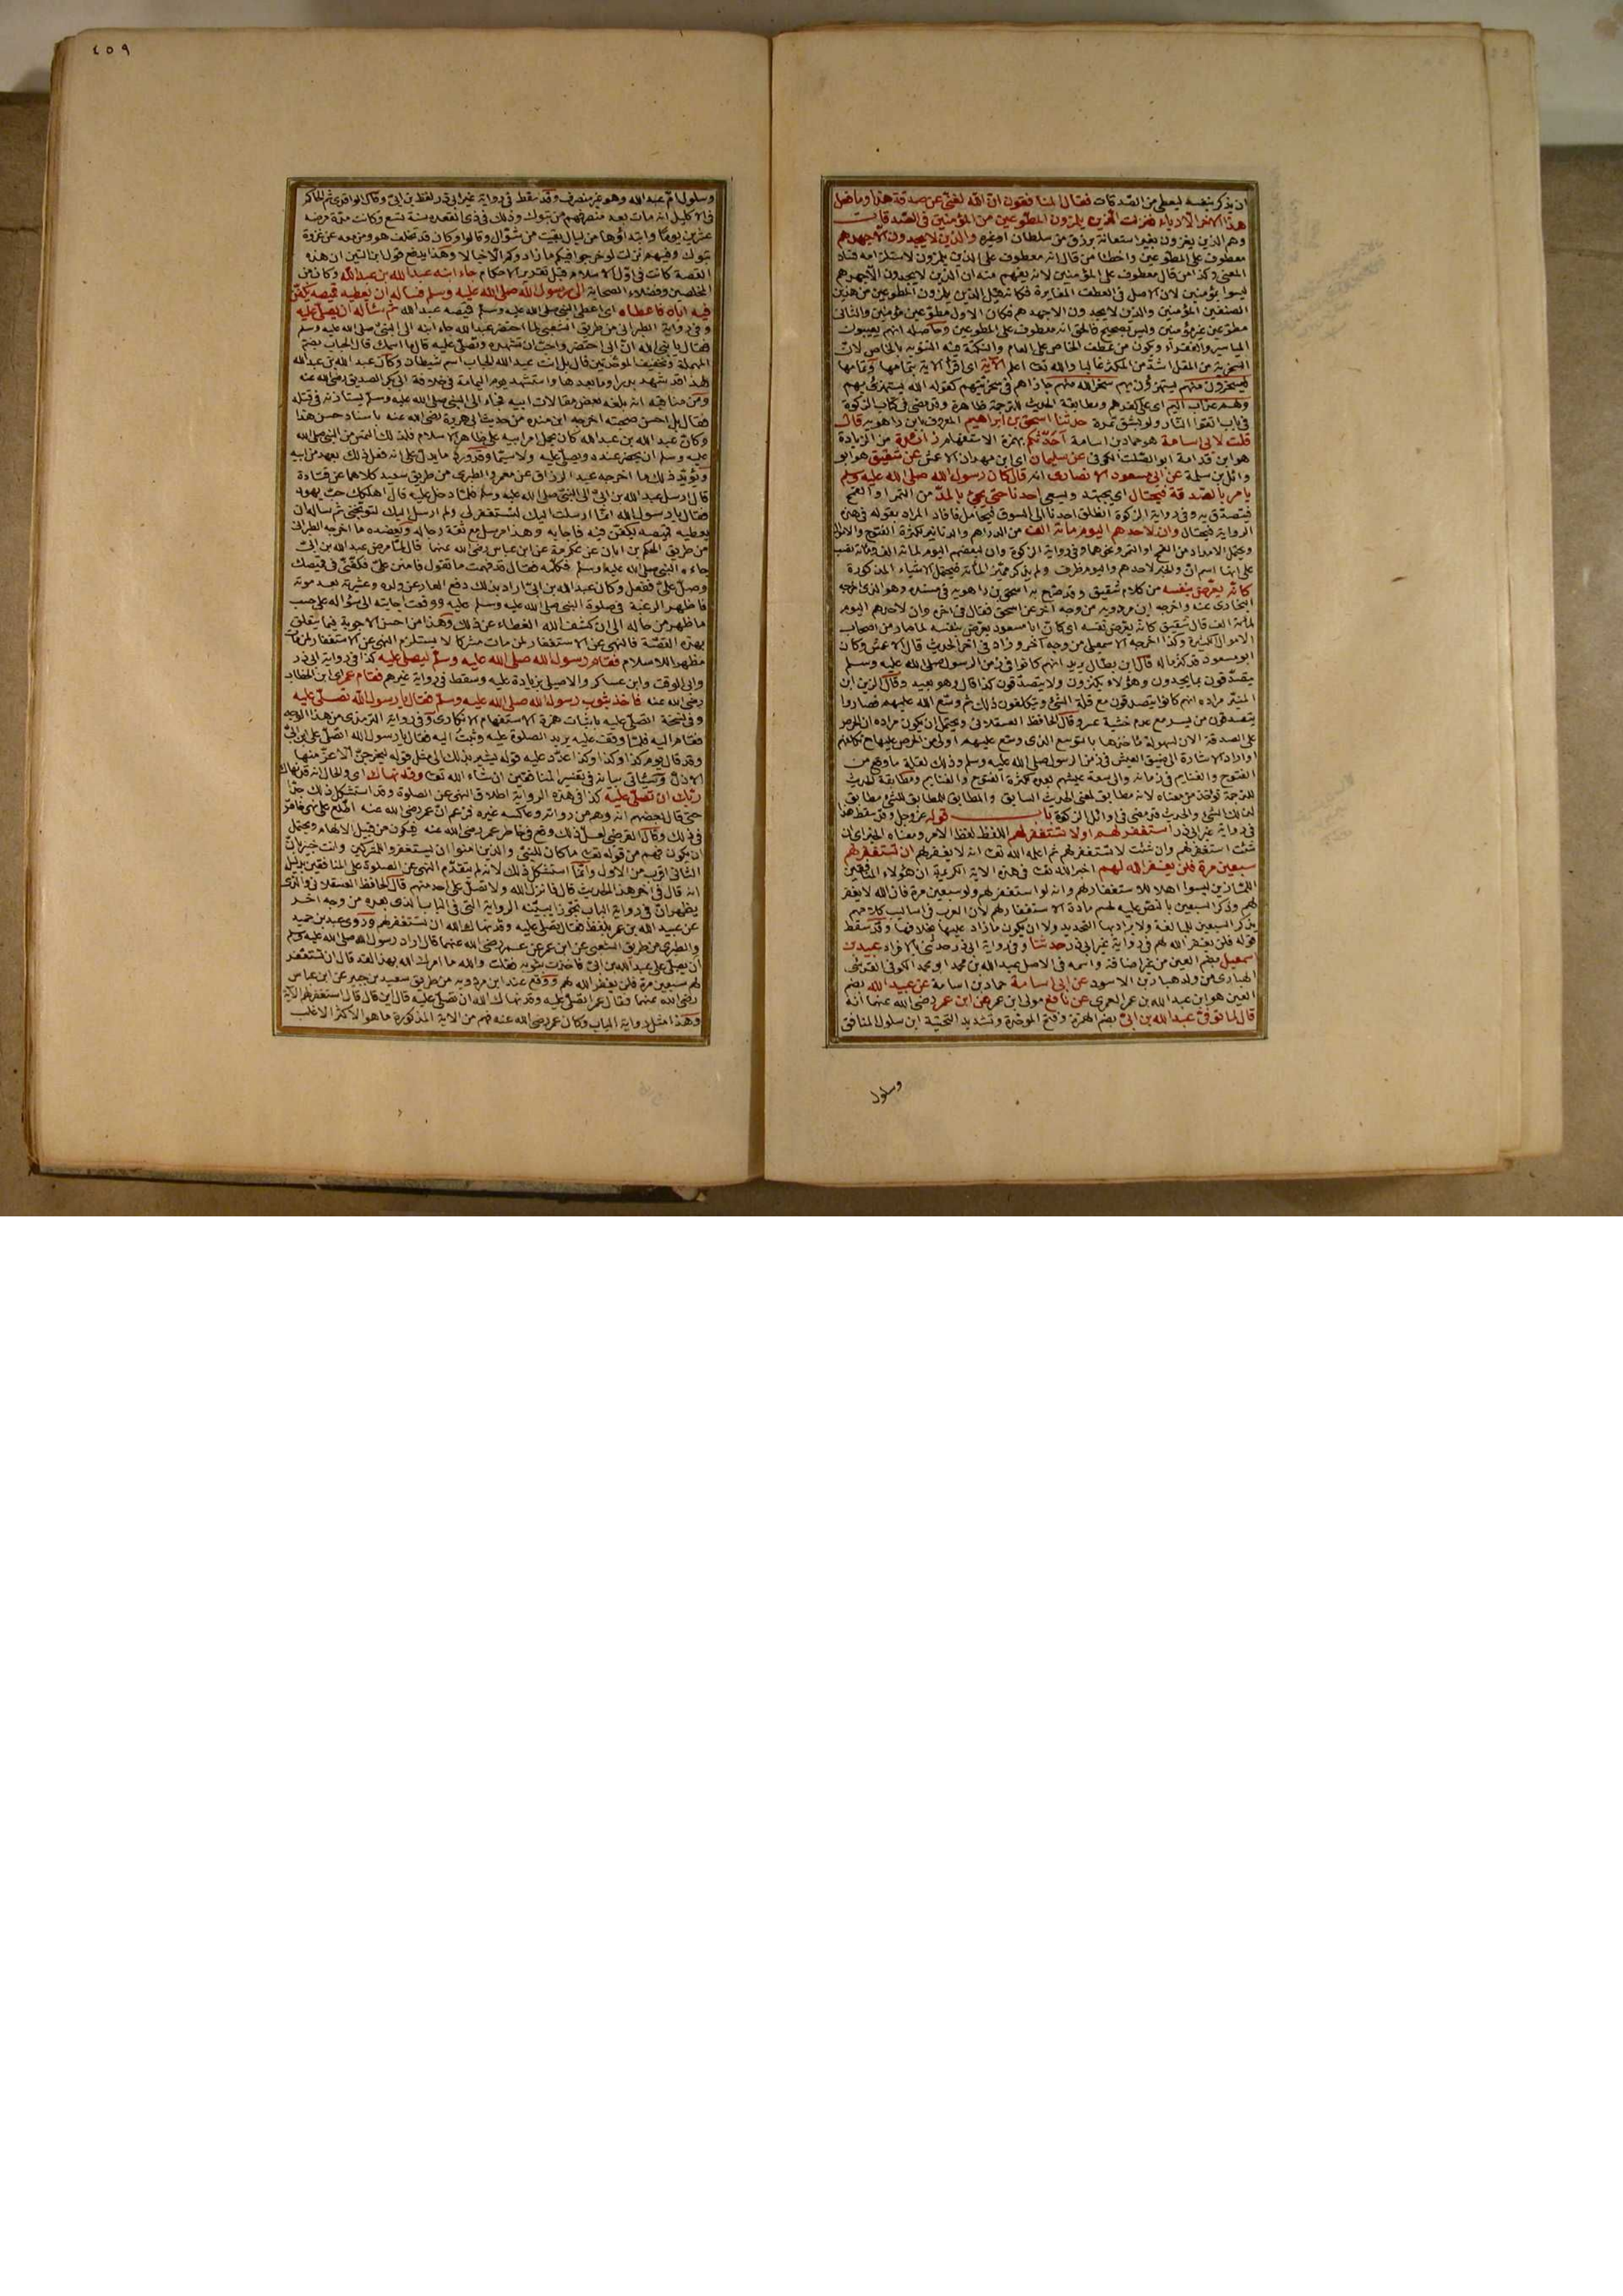 ان يذكر بنفسه ليعطى من الصدقات فقال المنافقون ان الله لغنى عن صدقة هذا وما فعل
هذا الاخر الا رياء فنزلت الذين يلمزون المطوعين من المؤمنين في الصدقات
وهم الذين يغزون بغير استعانة برزق من سلطان او غيره والذين لا يجدون الا جهدهم
معطوف على المطوعين واخطأ من قال انه معطوف على الذين يلمزون لاستلزامه فساد
المعنى وكذا من قال معطوف على المؤمنين لانه يفهم منه ان الذين لا يجدون الا جهدهم
ليسوا بمؤمنين لان الاصل في العطف المغايرة فكانه قيل الذين يلمزون المطوعين من هذين
الصنفين المؤمنين والذين لا يجدون الا جهدهم فكان الاول مطوعين مؤمنين والثاني
مطوعين غير مؤمنين وليس بصحيح فالحق انه معطوف على المطوعين وحاصله انهم يعيبون
المياسير والفقراء ويكون من عطف الخاص على العام والنكتة فيه التنويه بالخاص لان
السخرية من المقل اشد من المكثر غالبا والله تعالى اعلم الآية اى اقرأ الآية بتمامها وتمامها
فيسخرون منهم يستهزؤن بهم سخر الله منهم جازاهم في سخريتهم كقوله الله يستهزئ بهم
ولهم عذاب اليم اى على كفرهم ومطابقة الحديث للترجمة ظاهرة وقد مضى في كتاب الزكوة
في باب اتقوا النار ولو بشق تمرة حدثنا اسحق بن ابراهيم المعروف بابن راهويه قال
قلت لابى اسامة هو حماد بن اسامة احدثكم بهمزة الاستفهام زائدة من الزيادة
هو ابن قدامة ابو الصلت الكوفي عن سليمان اى ابن مهران الاعمش عن شقيق هو ابو
وائل بن سلمة عن ابى مسعود الانصارى انه قال كان رسول الله صلى الله عليه وسلم
يامر بالصدقة فيحتال اى يجتهد ويسعى احدنا حتى يجئ بالمد من التمر او القمح
فيتصدق به وفي رواية الزكوة انطلق احدنا الى السوق فيحامل فافاد المراد بقوله في هذه
الرواية فيحتال وان لاحدهم اليوم مائة الف من الدراهم والدنانير لكثرة الفتوح والاموال
ويحتمل الامداد من القمح او التمر ونحوهما وفي رواية الزكوة وان لبعضهم اليوم لمائة الف ومائة نصب
على انها اسم ان والخبر لاحدهم واليوم ظرف ولم يذكر مميز المائة فيحتمل الاشياء المذكورة
كانه يعرض بنفسه من كلام شقيق وقد صرح به اسحق بن راهويه في مسنده وهو الذى اخرجه
البخارى عنه واخرجه ابن مردويه من وجه آخر عن اسحق فقال في اخره وان لاحدهم اليوم
لمائة الف قال شقيق كانه يعرض بنفسه اى كان ابا مسعود يعرض بنفسه لما صار من اصحاب
الاموال الكثيرة وكذا اخرجه الاسمعيلى من وجه آخر وزاد في آخر الحديث قال الاعمش وكان
ابو مسعود قد كثر ماله قال ابن بطال يريد انهم كانوا في زمن الرسول صلى الله عليه وسلم
يتصدقون بما يجدون وهؤلاء يكثرون ولا يتصدقون كذا قال وهو بعيد وقال الزين ابن
المنير مراده انهم كانوا يتصدقون مع قلة الشئ ويتكلفون ذلك ثم وسع الله عليهم فصاروا
يتصدقون من يسر مع عدم خشية عسر وقال الحافظ العسقلانى ويحتمل ان يكون مراده ان الحرص
على الصدقة الان لسهولة ماخذها بالتوسع الذى وسع عليهم اولى من الحرص عليها مع تكلفهم
او اراد الاشارة الى ضيق العيش في زمن الرسول صلى الله عليه وسلم وذلك لقلة ما وقع من
الفتوح والغنايم في زمانه والى سعة عيشهم بعده لكثرة الفتوح والغنايم ومطابقة الحديث
للترجمة تؤخذ من معناه لانه مطابق لمعنى الحديث السابق والمطابق للمطابق للشئ مطابق
لذلك الشئ والحديث قد مضى في اوائل الزكوة باب قوله عز وجل وقد سقط هذا
في رواية غير ابى ذر استغفر لهم او لا تستغفر لهم اللفظ لفظ الامر ومعناه الخبر اى ان
شئت استغفر لهم وان شئت لا تستغفر لهم ثم اعلمه الله تعالى انه لا يغفر لهم ان تستغفر لهم
سبعين مرة فلن يغفر الله لهم اخبر الله تعالى في هذه الاية الكريمة ان هؤلاء المنافقين
اللمازين ليسوا اهلا للاستغفار لهم وانه لو استغفر لهم ولو سبعين مرة فان الله لا يغفر
لهم وذكر السبعين بالنص عليه لحسم مادة الاستغفار لهم لان العرب في اساليب كلامهم
يذكر السبعين للمبالغة ولا يراد بها التحديد ولا ان يكون ما زاد عليها بخلافها وقد سقط
قوله فلن يغفر الله لهم في رواية غير ابى ذر حدثنا وفي رواية ابى ذر حدثنى بالافراد عبيد بن
اسمعيل بضم العين من غير اضافة واسمه في الاصل عبد الله بن محمد ابو محمد الكوفي القرشى
الهبارى من ولد هبار بن الاسود عن ابى اسامة حماد بن اسامة عن عبيد الله بضم
العين هو ابن عبد الله بن عمر العمرى عن نافع مولى ابن عمر عن ابن عمر رضى الله عنهما انه
قال لما توفى عبد الله بن ابى بضم الهمزة وفتح الموحدة وتشديد التحتية ابن سلول المنافق
وسلول
٤٥٩
وسلول ام عبد الله وهو غير منصرف وقد سقط في رواية غير ابى ذر لفظ بن ابى وقال الواقدى ثم الحاكم
في الاكليل انه مات بعد منصرفهم من تبوك وذلك في ذى القعدة سنة تسع وكانت مدة مرضه
عشرين يوما وابتداؤها من ليال بقيت من شوال وقالوا وكان قد تخلف هو ومن معه عن غزوة
تبوك وفيهم نزلت لو خرجوا فيكم ما زادوكم الا خبالا وهذا يدفع قول ابن التين ان هذه
القصة كانت في اول الاسلام قبل تقدير الاحكام جاء ابنه عبد الله بن عبد الله وكان من
المخلصين وفضلاء الصحابة الى رسول الله صلى الله عليه وسلم فسأله ان يعطيه قميصه يكفن
فيه اباه فاعطاه اى اعطى النبى صلى الله عليه وسلم قميصه عبد الله ثم سأله ان يصلى عليه
وفي رواية الطبرانى من طريق الشعبى لما احتضر عبد الله جاء ابنه الى النبى صلى الله عليه وسلم
فقال يا نبى الله ان ابى احتضر واحب ان تشهده وتصلى عليه قال ما اسمك قال الحباب بضم
المهملة وتخفيف الموحدتين قال بل انت عبد الله الحباب اسم شيطان وكان عبد الله بن عبد الله
هذا قد شهد بدرا وما بعدها واستشهد يوم اليمامة في خلافة ابى بكر الصديق رضى الله عنه
ومن مناقبه انه بلغه بعض مقالات ابيه فجاء الى النبى صلى الله عليه وسلم يستاذنه في قتله
فقال بل احسن صحبته اخرجه ابن منده من حديث ابى هريرة رضى الله عنه باسناد حسن هذا
وكان عبد الله بن عبد الله كان يحمل امر ابيه على ظاهر الاسلام فلذلك التمس من النبى صلى الله
عليه وسلم ان يحضر عنده ويصلى عليه ولا سيما وقد ورد ما يدل على انه فعل ذلك بعهد من ابيه
ويؤيد ذلك ما اخرجه عبد الرزاق عن معمر والطبرى من طريق سعيد كلاهما عن قتادة
قال ارسل عبد الله بن ابى الى النبى صلى الله عليه وسلم فلما دخل عليه قال اهلكك حب يهود
فقال يا رسول الله انما ارسلت اليك لتستغفر لى ولم ارسل اليك لتوبخنى ثم سأله ان
يعطيه قميصه يكفن فيه فاجابه وهذا مرسل مع ثقة رجاله ويعضده ما اخرجه الطبرانى
من طريق الحكم بن ابان عن عكرمة عن ابن عباس رضى الله عنهما قال لما مرض عبد الله بن ابى
جاءه النبى صلى الله عليه وسلم فكلمه فقال قد فهمت ما تقول فامنن على فكفنى في قميصك
وصل على ففعل وكان عبد الله بن ابى اراد بذلك دفع العار عن ولده وعشيرته بعد موته
فاظهر الرغبة في صلوة النبى صلى الله عليه وسلم عليه ووقعت اجابته الى سؤاله على حسب
ما ظهر من حاله الى ان كشف الله الغطاء عن ذلك وهذا من احسن الاجوبة فيما يتعلق
بهذه القصة فالنهى عن الاستغفار لمن مات مشركا لا يستلزم النهى عن الاستغفار لمن مات
مظهرا للاسلام فقام رسول الله صلى الله عليه وسلم ليصلى عليه كذا في رواية ابى ذر
وابى الوقت وابن عساكر والاصيلى بزيادة عليه وسقط في رواية غيرهم فقام عمر اى ابن الخطاب
رضى الله عنه فاخذ بثوب رسول الله صلى الله عليه وسلم فقال يا رسول الله تصلى عليه
وفي نسخة اتصلى عليه باثبات همزة الاستفهام الانكارى وفي رواية الترمذى من هذا الوجه
فقام اليه فلما وقف عليه يريد الصلوة عليه وثبت اليه فقال يا رسول الله اتصلى على ابن ابى
وقد قال يوم كذا وكذا وكذا اعدد عليه قوله يشير بذلك الى مثل قوله ليخرجن الاعز منها
الاذل وسيأتى بيانه في تفسير المنافقين ان شاء الله تعالى وقد نهاك اى والحال انه قد نهاك
ربك ان تصلى عليه كذا في هذه الرواية اطلاق النهى عن الصلوة وقد استشكل ذلك جدا
حتى قال بعضهم انه وهم من رواته وعاكسه غيره فزعم ان عمر رضى الله عنه اطلع على نهى خاص
في ذلك وقال القرطبى لعل ذلك وقع في خاطر عمر رضى الله عنه فيكون من قبيل الالهام ويحتمل
ان يكون فهم من قوله تعالى ما كان للنبى والذين امنوا ان يستغفروا للمشركين وانت خبير بان
الثانى اقرب من الاول وانما استشكل ذلك لانه لم يتقدم النهى عن الصلوة على المنافقين بدليل
انه قال في اخر هذا الحديث قال فانزل الله ولا تصل على احد منهم قال الحافظ العسقلانى والذى
يظهر ان في رواية الباب تجوزا بينته الرواية التى في الباب الذى بعده من وجه اخر
عن عبيد الله بن عمر بلفظ فقال تصلى عليه وقد نهاك الله ان تستغفر لهم وروى عبد بن حميد
والطبرى من طريق الشعبى عن ابن عمر عن عمر رضى الله عنهما قال اراد رسول الله صلى الله عليه وسلم
ان يصلى على عبد الله بن ابى فاخذت بثوبه فقلت والله ما امرك الله بهذا لقد قال ان تستغفر
لهم سبعين مرة فلن يغفر الله لهم ووقع عند ابن مردويه من طريق سعيد بن جبير عن ابن عباس
رضى الله عنهما فقال عمر اتصلى عليه وقد نهاك الله ان تصلى عليه قال اين قال قال استغفر لهم الآية
وهذا مثل رواية الباب وكان عمر رضى الله عنه فهم من الاية المذكورة ما هو الاكثر الاغلب